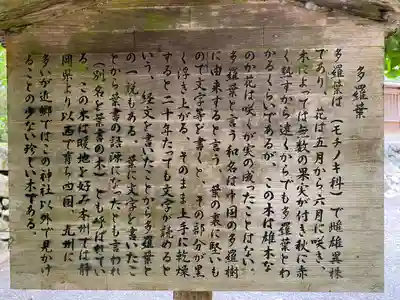 多羅葉
多羅葉は(モチノキ科)で雌雄異株
であり、花は五月から六月に咲き、
木によっては無数の果実が付き秋に赤
く熟すから遠くからでも多羅葉とわ
かるくらいであるが、この木は雄木な
のか花は咲くが実の成ったことはない。
多羅葉と言う和名は中国の多羅樹
に由来すると言う。葉の裏に堅いも
ので文字等を書くと、その部分が黒
く浮き上がる。そのまま上手に乾燥
すると二十年たっても文字が読めると
いう。経文を書いたことから多羅葉と
の一説もある。葉に文字を書いたこ
とから葉書の語源になったとも言われ
(別名を葉書の木)とも呼ばれてい
る。この木は暖地を好み本州では静
岡県より以西で育ち四国、九州に
多いが近郷ではこの神社以外で見かけ
ることの少ない珍しい木である。